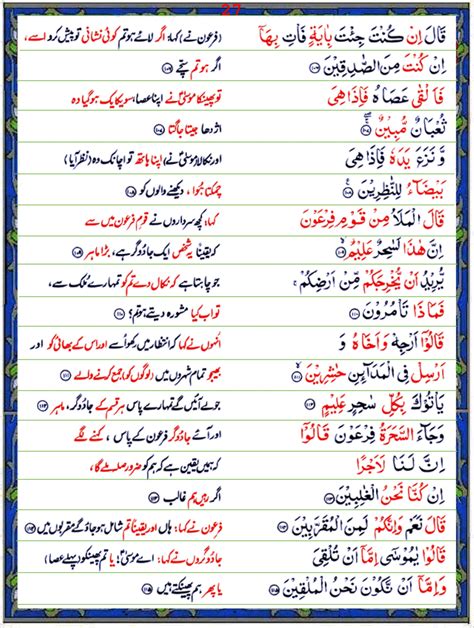 27
قَالَ اِنْ كُنْتَ جِئْتَ بِاٰيَةٍ فَاْتِ بِهَاۤ
(فرعون نے) کہا: اگر لائے ہو تم کوئی نشانی تو پیش کرو اسے،
اِنْ كُنْتَ مِنَ الصّٰدِقِيْنَ ﴿۱۰۶﴾
اگر ہو تم سچے ﴿۱۰۶﴾
فَاَلْقٰى عَصَاهُ فَاِذَا هِىَ
تو پھینکا موسیٰؑ نے اپنا عصا، سو یکایک ہو گیا وہ
ثُعْبَانٌ مُّبِيْنٌ ﴿۱۰۷﴾
اژدھا جیتا جاگتا ﴿۱۰۷﴾
وَّنَزَعَ يَدَهٗ فَاِذَا هِىَ
اور نکالا موسیٰؑ نے) اپنا ہاتھ تو اچانک وہ (نظر آیا)
بَيْضَآءُ لِلنّٰظِرِيْنَ ﴿۱۰۸﴾
چمکتا ہوا، دیکھنے والوں کو ﴿۱۰۸﴾
قَالَ الْمَلَاُ مِنْ قَوْمِ فِرْعَوْنَ
کہا، کچھ سرداروں نے قومِ فرعون میں سے
اِنَّ هٰذَا لَسٰحِرٌ عَلِيْمٌ ﴿۱۰۹﴾
کہ یقینًا یہ شخص ایک جادوگر ہے، بڑا ماہر ﴿۱۰۹﴾
يُّرِيْدُ اَنْ يُّخْرِجَكُمْ مِّنْ اَرْضِكُمْ ۚ
جو چاہتا ہے کہ نکال دے تم کو تمہارے مُلک سے،
فَمَاذَا تَاْمُرُوْنَ ﴿۱۱۰﴾
تو اب کیا مشورہ دیتے ہو تم؟ ﴿۱۱۰﴾
قَالُوْۤا اَرْجِهْ وَاَخَاهُ وَ
اُنہوں نے کہا: کہ انتظار میں رکھو اُسے اور اس کے بھائی کو اور
اَرْسِلْ فِى الْمَدَآئِنِ حٰشِرِيْنَ ﴿۱۱۱﴾
بھیجو تمام شہروں میں (لوگوں کو) جمع کرنے والے ﴿۱۱۱﴾
يَاْتُوْكَ بِكُلِّ سٰحِرٍ عَلِيْمٍ ﴿۱۱۲﴾
جو لے آئیں تمہارے پاس ہر قسم کے جادوگر، ماہر ﴿۱۱۲﴾
وَجَآءَ السَّحَرَةُ فِرْعَوْنَ قَالُوْۤا
اور آئے جادُوگر فرعون کے پاس، کہنے لگے
اِنَّ لَنَا لَاَجْرًا
کہ ہمیں یقین ہے کہ ہم کو ضرور صلہ ملے گا
اِنْ كُنَّا نَحْنُ الْغٰلِبِيْنَ ﴿۱۱۳﴾
اگر رہیں ہم غالب ﴿۱۱۳﴾
قَالَ نَعَمْ وَاِنَّكُمْ لَمِنَ الْمُقَرَّبِيْنَ ﴿۱۱۴﴾
فرعون نے کہا: ہاں اور یقینًا تم شامل ہو جاؤ گے مقربوں میں ﴿۱۱۴﴾
قَالُوْا يٰمُوْسٰٓى اِمَّاۤ اَنْ تُلْقِىَ
جادوگروں نے کہا: اے موسیٰؑ! یا تم پھینکو (پہلے عصا)
وَاِمَّاۤ اَنْ نَّكُوْنَ نَحْنُ الْمُلْقِيْنَ ﴿۱۱۵﴾
یا پھر، ہم پھینکتے ہیں ﴿۱۱۵﴾